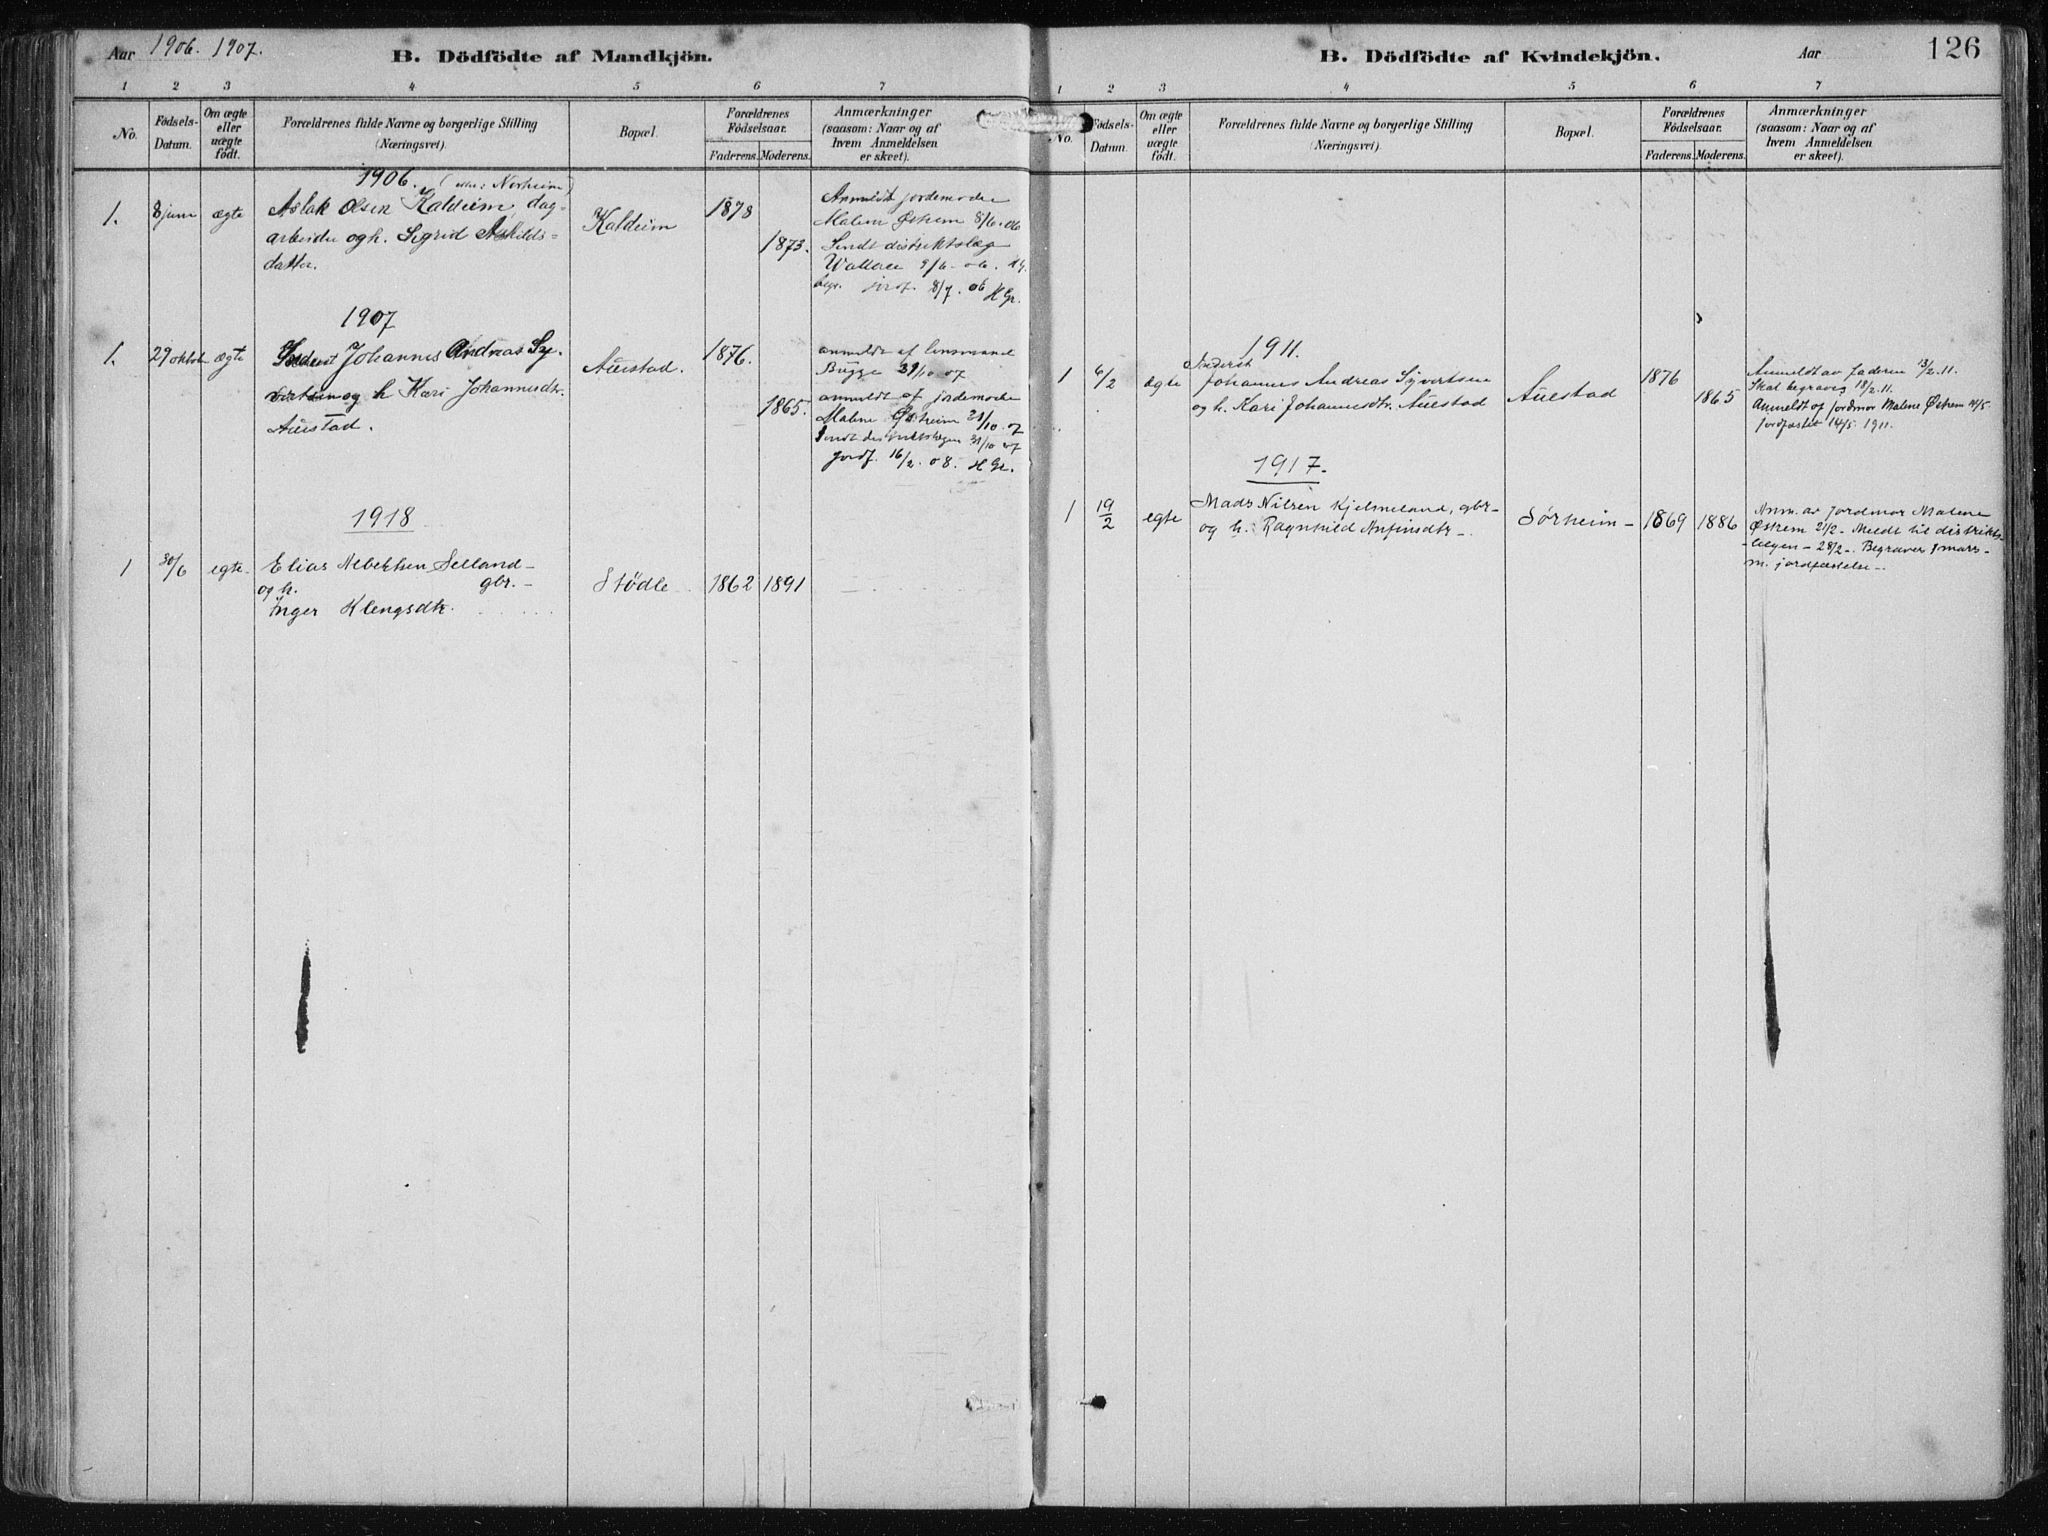 Aar 1906. 1907.
B. Dödfödte af Mandkjön.
1 2 3 4 5 6 7
No.
Födsels-
Datum.
Om ægte
eller
uægte
födt.
Forældrenes fulde Navne og borgerlige Stilling
(Næringsvei).
Bopæl.
Forældrenes
Födselsaar.
Faderens. Moderens.
Anmærkninger
(saasom: Naar og af
hvem Anmeldelsen
er skeet).
1906. Norheim)
1. 8 juni ægte Aslak Olsen Kaldeim, dag-
arbeider og h. Sigrid Askilds-
datter.
Kaldeim
1878
1873.
Anmeldt jordemoder
Malene Østrem 8/6.06
Sendt distriktslæge
Wallace 9/6-06.
begr. jordf. 8/7. 06 H Gr.
1907
1. 29 oktob ægte Inderst Johannes Andreas Sy-
vertsen og h Kari Johannesdtr.
Auestad.
Auestad.
1876.
1865.
anmeldt af lensmand
Bugge 31/10 07
anmeldt af jordemoder
Malene Østrem 31/10.07
Sendt distriktslægen 31/10 07
jordf. 16/2.08. H Gr.
1918
1 30/6 egte. Elias Albertsen Selland-
og h. gbr.-
Inger Klengsdtr.
Stødle
1862 1891
B. Dödfödte af Kvindekjön.
Aar
126
1 2 3 4 5 6 7
No.
Födsels-
Datum.
Om ægte
eller
uægte
födt.
Forældrenes fulde Navne og borgerlige Stilling
(Næringsvei).
Bopæl.
Forældrenes
Födselsaar.
Faderens. Moderens.
Anmærkninger
(saasom: Naar og af
hvem Anmeldelsen
er skeet).
1911.
1 6/2 ægte Inderst
Johannes Andreas Syvertsen
og h. Kari Johannesdtr. Auestad
Auestad
1876
1865
Anmeldt av faderen 13/2.11.
Skal begraves 18/2.11.
Anmeldt af jordmor Malene Østrem 14/5.
jordfæstet 14/5 1911.
1917.
1 19/2 egte Mads Nilsen Kjelmeland, gbr-
og h. Ragnhild Anfinsdtr-.
Sørheim-
1869 1886
Anm. av jordmor Malene
Østrem 21/2- Meldt til distrikts-
-lægen- 28/2-. Begravet 1 mars-
m. jordfæstelse-.